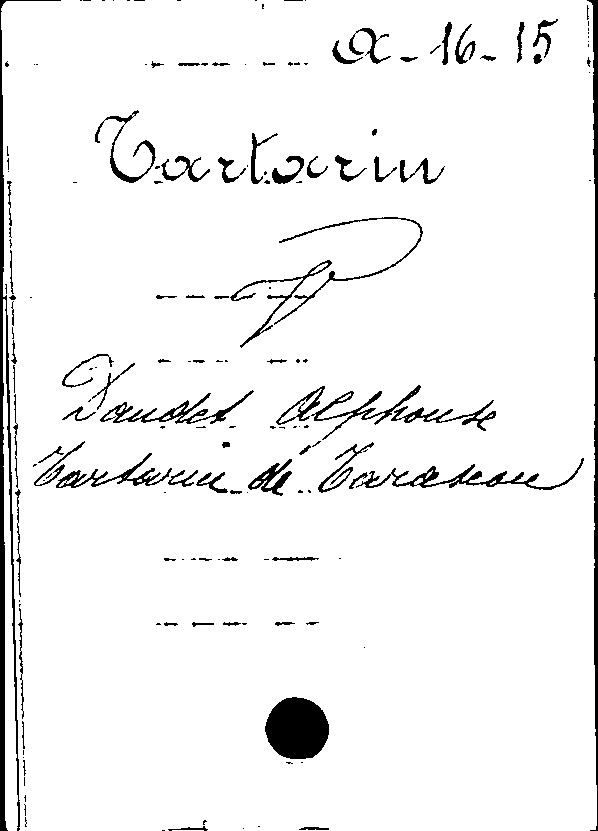 A-16-15
Tartarin
V
Daudet Alphonse
Tartarin de Tarascon